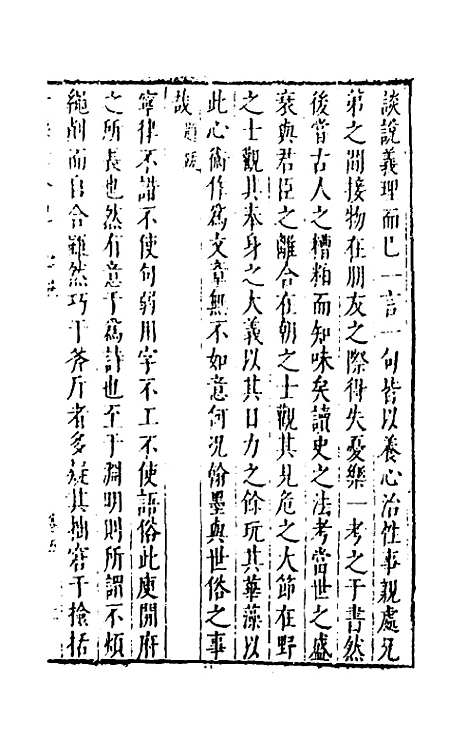 談說義理而已一言一句皆以養心治性事親處兄
弟之間接物在朋友之際得失憂樂一考之于書然
後嘗古人之糟粕而知味矣讀史之法考當世之盛
衰與君臣之離合在朝之士觀其見危之大節在野
之士觀其奉身之大義以其日力之餘玩其華藻以
此心術作為文章無不如意何况翰墨與世俗之事
哉 題跋
寧律不諧不使句弱用字不工不使語俗此庾開府
之所長也然有意于為詩也至于淵明則所謂不煩
繩削而自合雖然巧于斧斤者多疑其拙窘于撿括